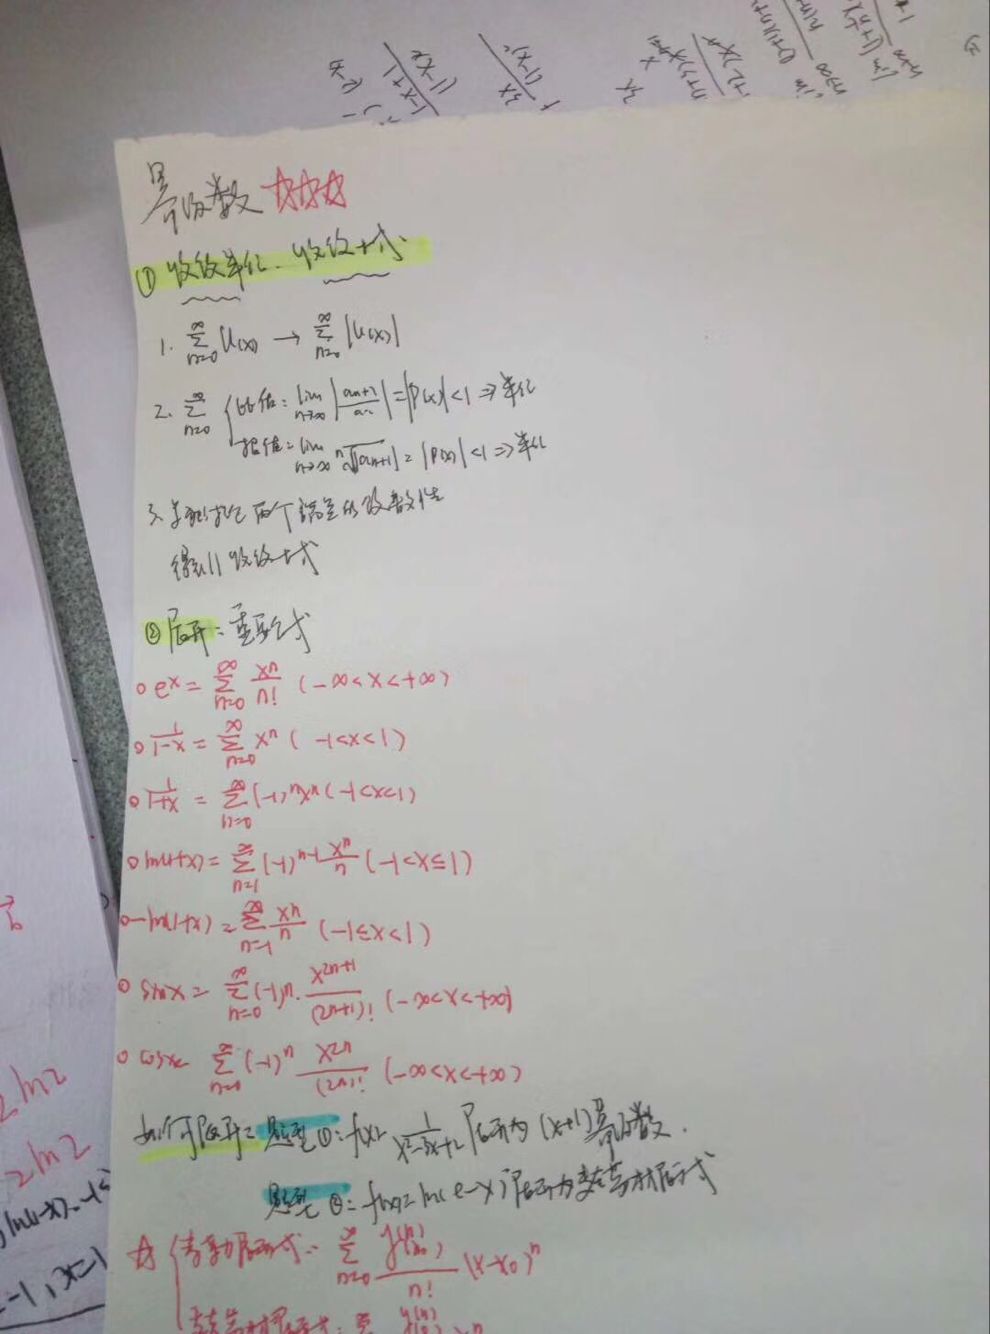 幂级数 ☆☆☆
① 收敛半径、收敛域
1. ∑_{n=0}^{∞} U(x) → ∑_{n=0}^{∞} |U(x)|
2. ∑_{n=0}^{∞} { 比值: lim_{n→∞} |a_{n+1}/a_n| = |P(x)| < 1 ⇒ 半径
根值: lim_{n→∞} ⁿ√|a_{n+1}| = |P(x)| < 1 ⇒ 半径
3. 两个端点的敛散性
得到收敛域
② 展开: 重要公式
e^x = ∑_{n=0}^{∞} x^n/n! (-∞<x<+∞)
1/(1-x) = ∑_{n=0}^{∞} x^n (-1<x<1)
1/(1+x) = ∑_{n=0}^{∞} (-1)^n x^n (-1<x<1)
ln(1+x) = ∑_{n=1}^{∞} (-1)^{n-1} x^n/n (-1<x≤1)
-ln(1+x) = ∑_{n=1}^{∞} x^n/n (-1≤x<1)
sinx = ∑_{n=0}^{∞} (-1)^n · x^{2n+1}/(2n+1)! (-∞<x<+∞)
cosx = ∑_{n=0}^{∞} (-1)^n x^{2n}/(2n)! (-∞<x<+∞)
如何展开: 题型①: f(x)= 1/(x²-3x+2) 展开为 (x+1) 幂级数.
题型②: f(x)=ln(e-x) 展开为麦克劳林展开式
☆ { 泰勒展开式: ∑_{n=0}^{∞} f^{(n)}(x_0)/n! (x-x_0)^n
2ln2
2ln2